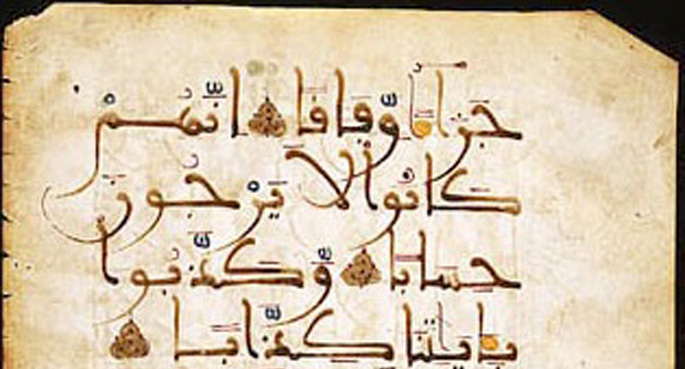 جَزَآءً وِّفَاقًا اِنَّهُمْ
كَانُوا لَا يَرْجُونَ
حِسَابًا وَّكَذَّبُوا
بِاٰيٰتِنَا كِذَّابًا